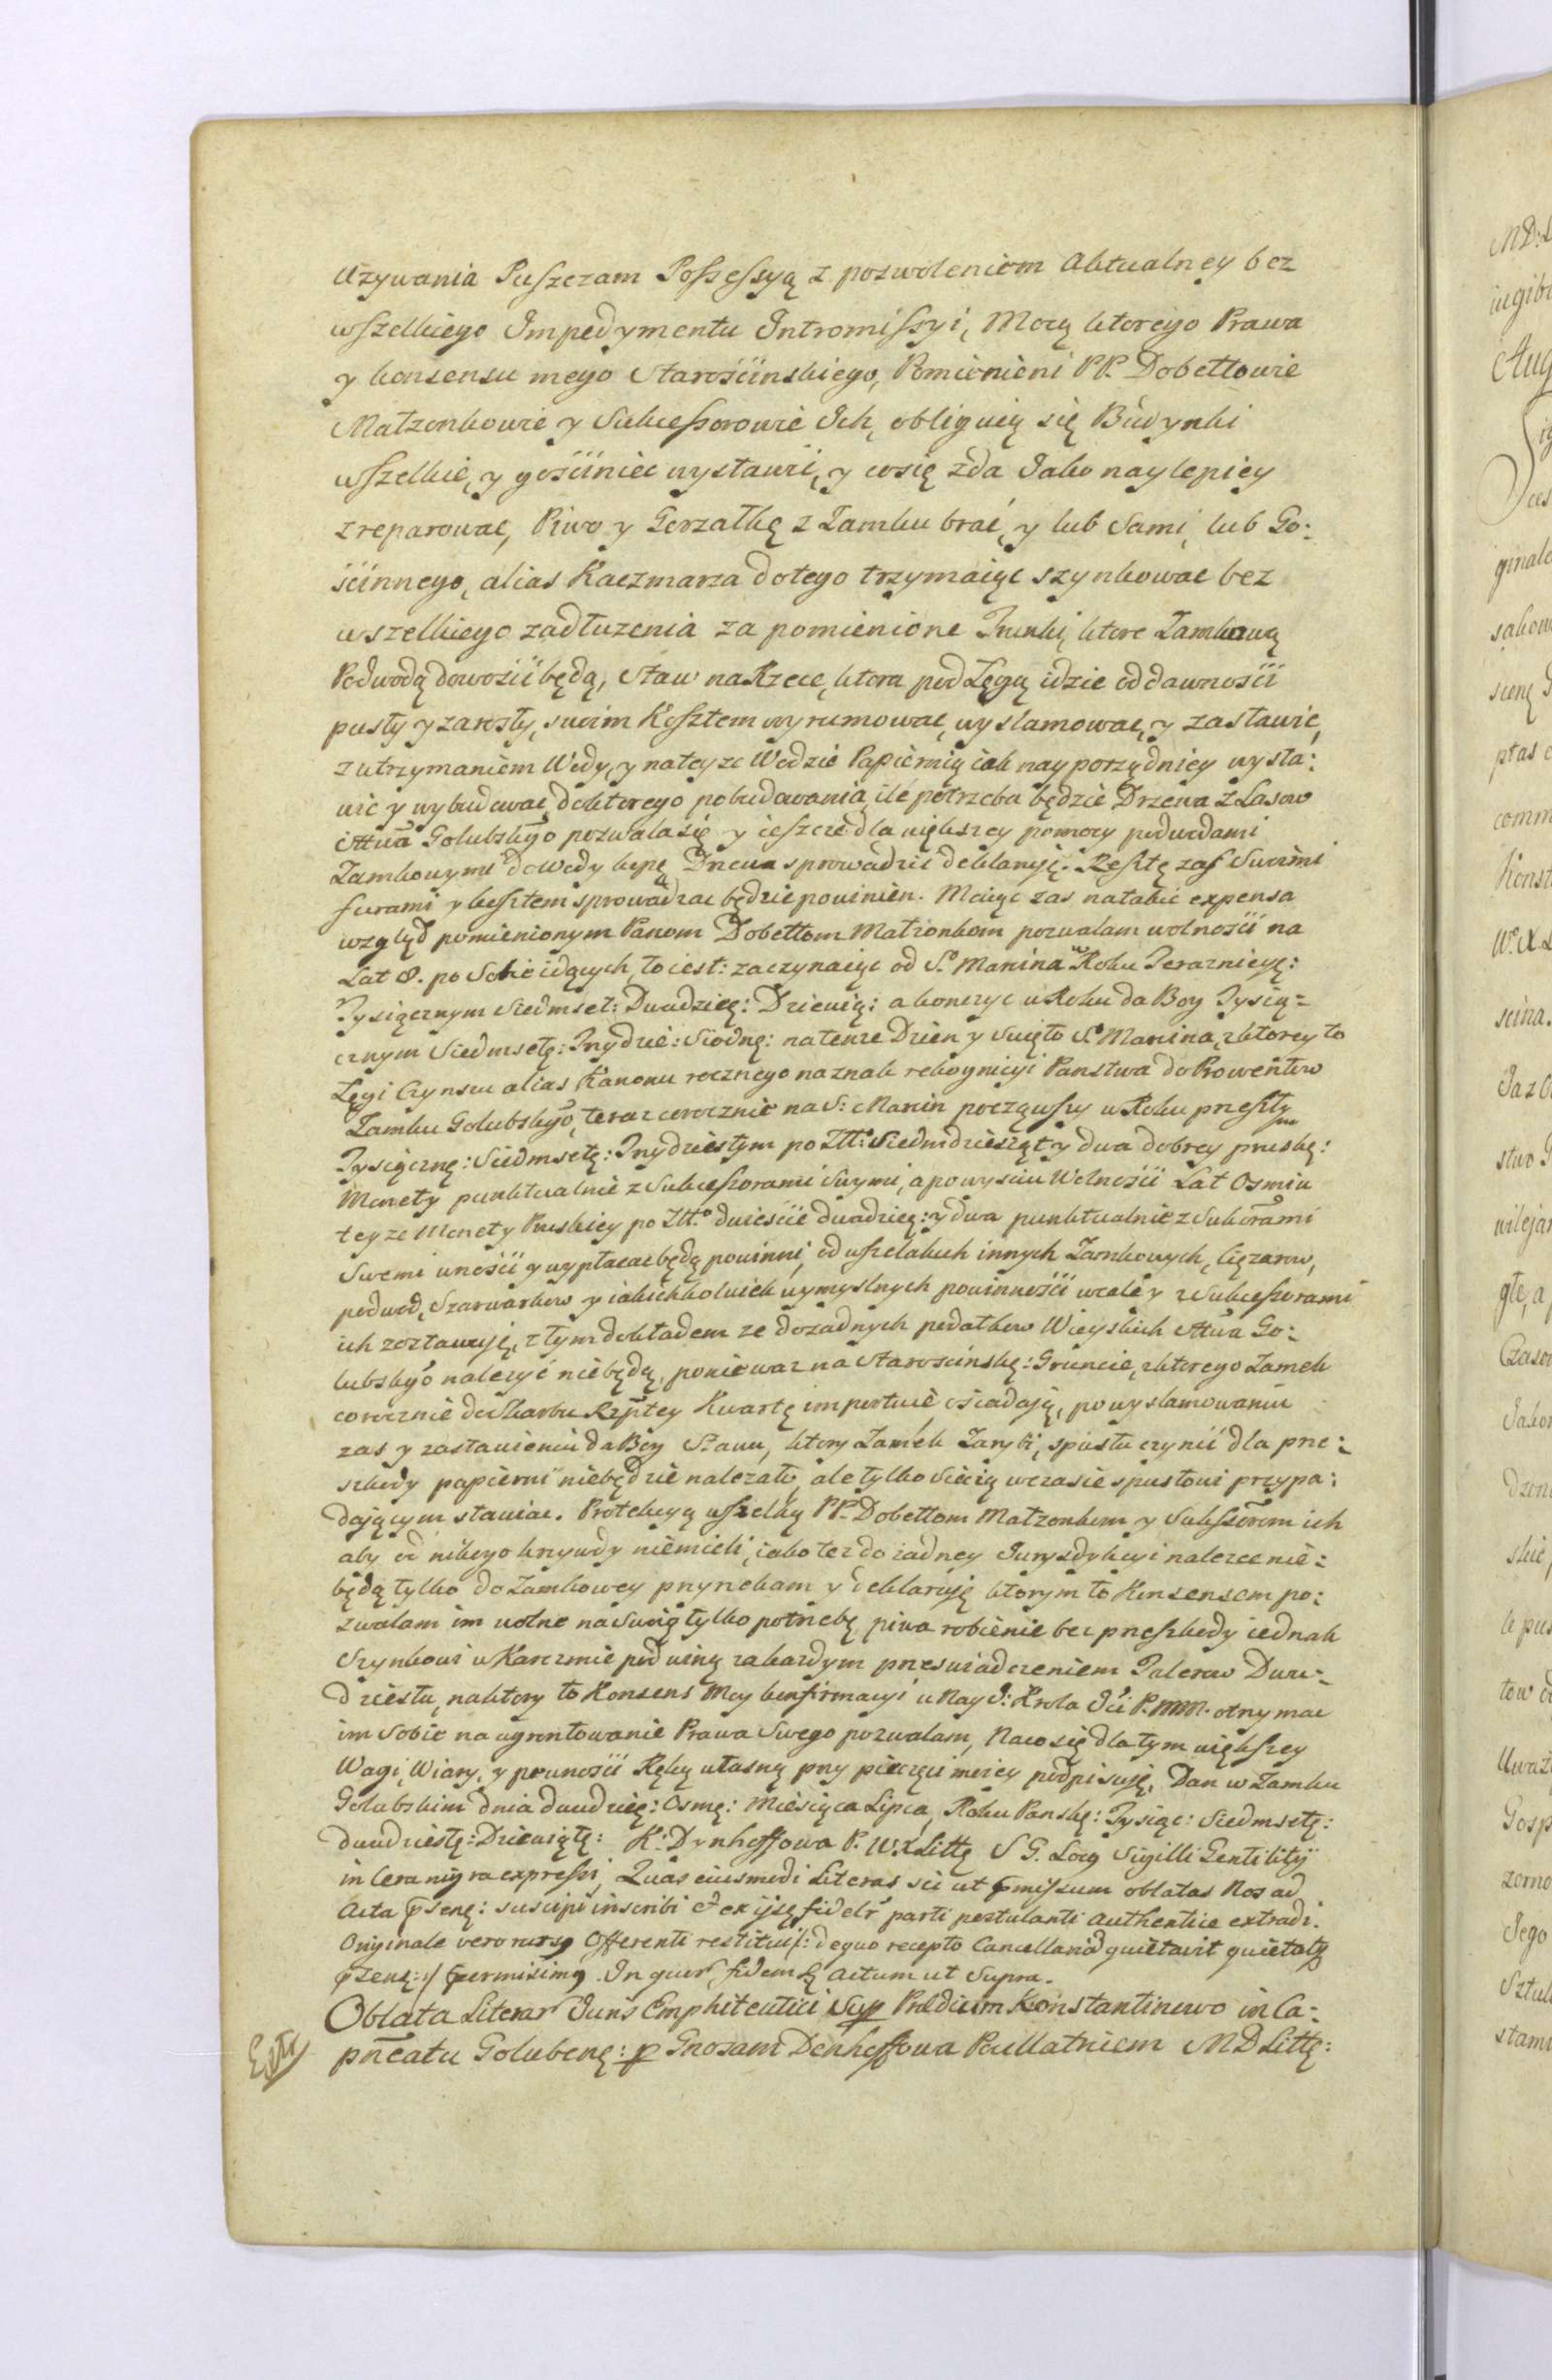 Uzywania Puszczam Possessyą z pozwoleniem Aktualney bez
wszelkiego Impedymentu Intromissyi, Mocą ktorego Prawa
y konsensu mego Starościnskiego, Pomienieni PP. Dobettowie
Małzonkowie y Sukcessorowie Ich, obliguią się Budynki
wszelkie, y gościniec wystawi, y co się zda Jako naylepiey
zreparowac, Piwo y Gorzałkę z Zamku brać, y lub Sami, lub Go:
ścinnego, alias Kaczmarza do tego trzymaiąc szynkowac bez
wszelkiego zadłuzenia za pomienione Trunki, ktore Zamkową
Podwodą dowozic będą, Staw na Rzece, ktora pod Łęgą idzie od dawności
pusty y zarosły, swoim Kosztem wyrumowac, wyslamowac, y zastawic,
z utrzymaniem Wody, y na teyze Wodzie Papiernią iak nayporządniey wysta:
wic y wybudowac, do ktorego pobudowania, ile potrzeba będzie Drzewa z Lasow
Sttwa Golubskgo pozwala się y ieszcze dla większey pomocy podwodami
Zamkowymi do Wody kopę Drzewa sprowadzic deklaruję. Resztę zas Swoimi
furami y kosztem sprowadzac będzie powinien. Maiąc zas na takie expensa
wzgląd pomienionym Panom Dobettom Matzonkom pozwalam wolności na
Lat 8. po Sobie idących, to iest: zaczynaiąc od S. Marcina w Roku Terazniey:
Tysiącznym Siedmset: Dwudzieę: Dziewią: a konczyc w Roku da Bog Tysią:
cznym Siedmsetę: Trzydzie: Siodmę: na tenze Dzien y Swięto S. Marcina, z ktorey to
Łęgi Czynszu alias Kanonu rocznego na znak rekognicyi Panstwa do Prowentow
Zamku Golubskgo, teraz corocznie na S: Marcin począwszy w Roku przeszłym
Tysiącznę: Siedmsetę: Trzydziestym po Złt: Siedmdziesiąt y dwa dobrey pruskę:
Monety punktualnie z Sukcessorami Swymi, a po wysciu Wolności Lat Osmiu
teyze Monety Pruskiey po Złt. dwieście dwadzieę: y dwa punktualnie z Sukorami
Swemi unosic y wypłacac będą powinni, od wszelakich innych Zamkowych, ciężarow,
podwod, Szarwarkow y iakichkolwiek wymyslnych powinności wcale y z Sukcessorami
ich zostawuję, z tym dokładem ze do zadnych podatkow Wieyskich Sttwa Go:
lubskgo nalezyć nie będą, poniewaz na Starościnskę: Gruncie, z ktorego Zamek
corocznie do Skarbu Rzptey Kwartę importuie, osiadają, po wyslamowaniu
zas y zastawieniu da Bog Stawu, ktory Zamek Zarybi, spustu czynić dla prze:
szkody papierni nie będzie nalezało, ale tylko Siecią w czasie spustowi przypa:
dającym stawiac. Protekcyą wszelką PP. Dobettom Matzonkom y Sukssorom ich
aby od nikogo krzywdy niemieli, iako tez do zadney Jurysdykcyi nalezec nie:
będą tylko do Zamkowey przyrzekam y deklaruję ktorym to Konsensem po:
zwalam im wolne na Swoią tylko potrzebę piwa robienie bez przeszkody iednak
Szynkowi w Karczmie pod winą za kazdym przeswiadczeniem Talerow Dwu:
dziestu, na ktory to Konsens Moy konfirmacyi u Nay J: Krola Jci P. MM. otrzymac
im Sobie na ugrontowanie Prawa Swego pozwalam, Na co się dla tym większey
Wagi, Wiary, y pewności Ręką własną przy pieczęci moiey podpisuję. Dan w Zamku
Golubskim dnia dwudzieę: Osmę: Miesiąca Lipca, Roku Panskę: Tysiąc: Siedmsetę:
dwudziestę: Dziewiątę: K: Dynhoffowa P. W.X.Littę S G. Locq Sigilli Gentilitÿ
in Cera nigra expressi, Quas eiusmodi Literas sic ut pmissum oblatas Nos ad
Acta psenę: suscipi inscribi et ex ijsę fidelr parti postulanti authentice extradi.
Originale vero rursq Offerenti restitui /: de quo recepto Cancellaria quietavit quietatq
psenę: :/ permisimq. In quor fidem Actum ut Supra.
Oblata Literar Juris Emphiteutici Sup Prædium Konstantinowo in Ca:
pneatu Golubenę: p Gnosam Denhoffowa Paellatricem MD Littę: